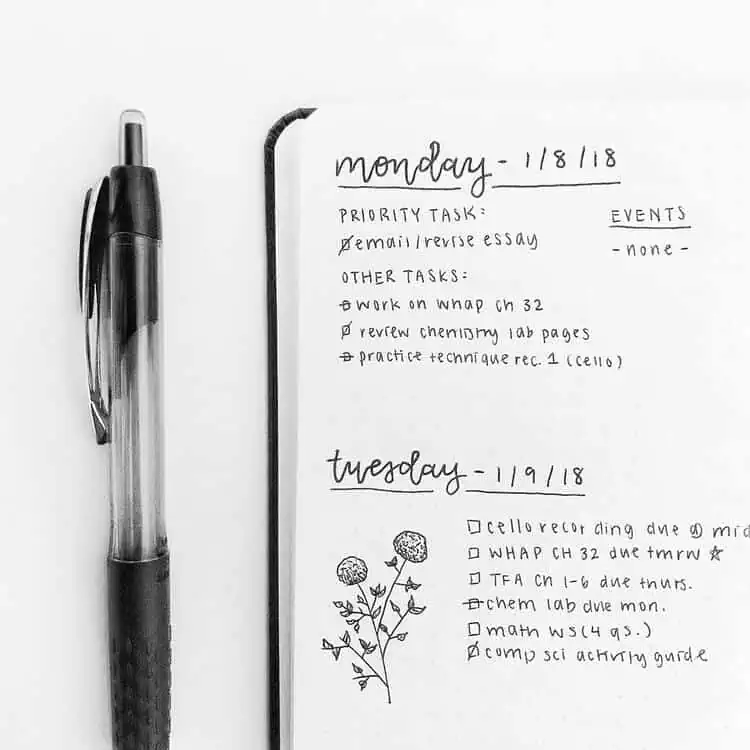 monday - 1/8/18
PRIORITY TASK:
email/revise essay
OTHER TASKS:
work on whap ch 32
review chemistry lab pages
practice technique rec. 1 (cello)
EVENTS
- none -
tuesday - 1/9/18
cello recording due @ mid
WHAP CH 32 due tmrw ☆
TFA Ch 1-6 due thurs.
chem lab due mon.
math ws (4 qs.)
comp sci activity guide